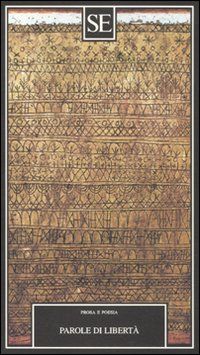 SE
PROSA E POESIA
PAROLE DI LIBERTÀ